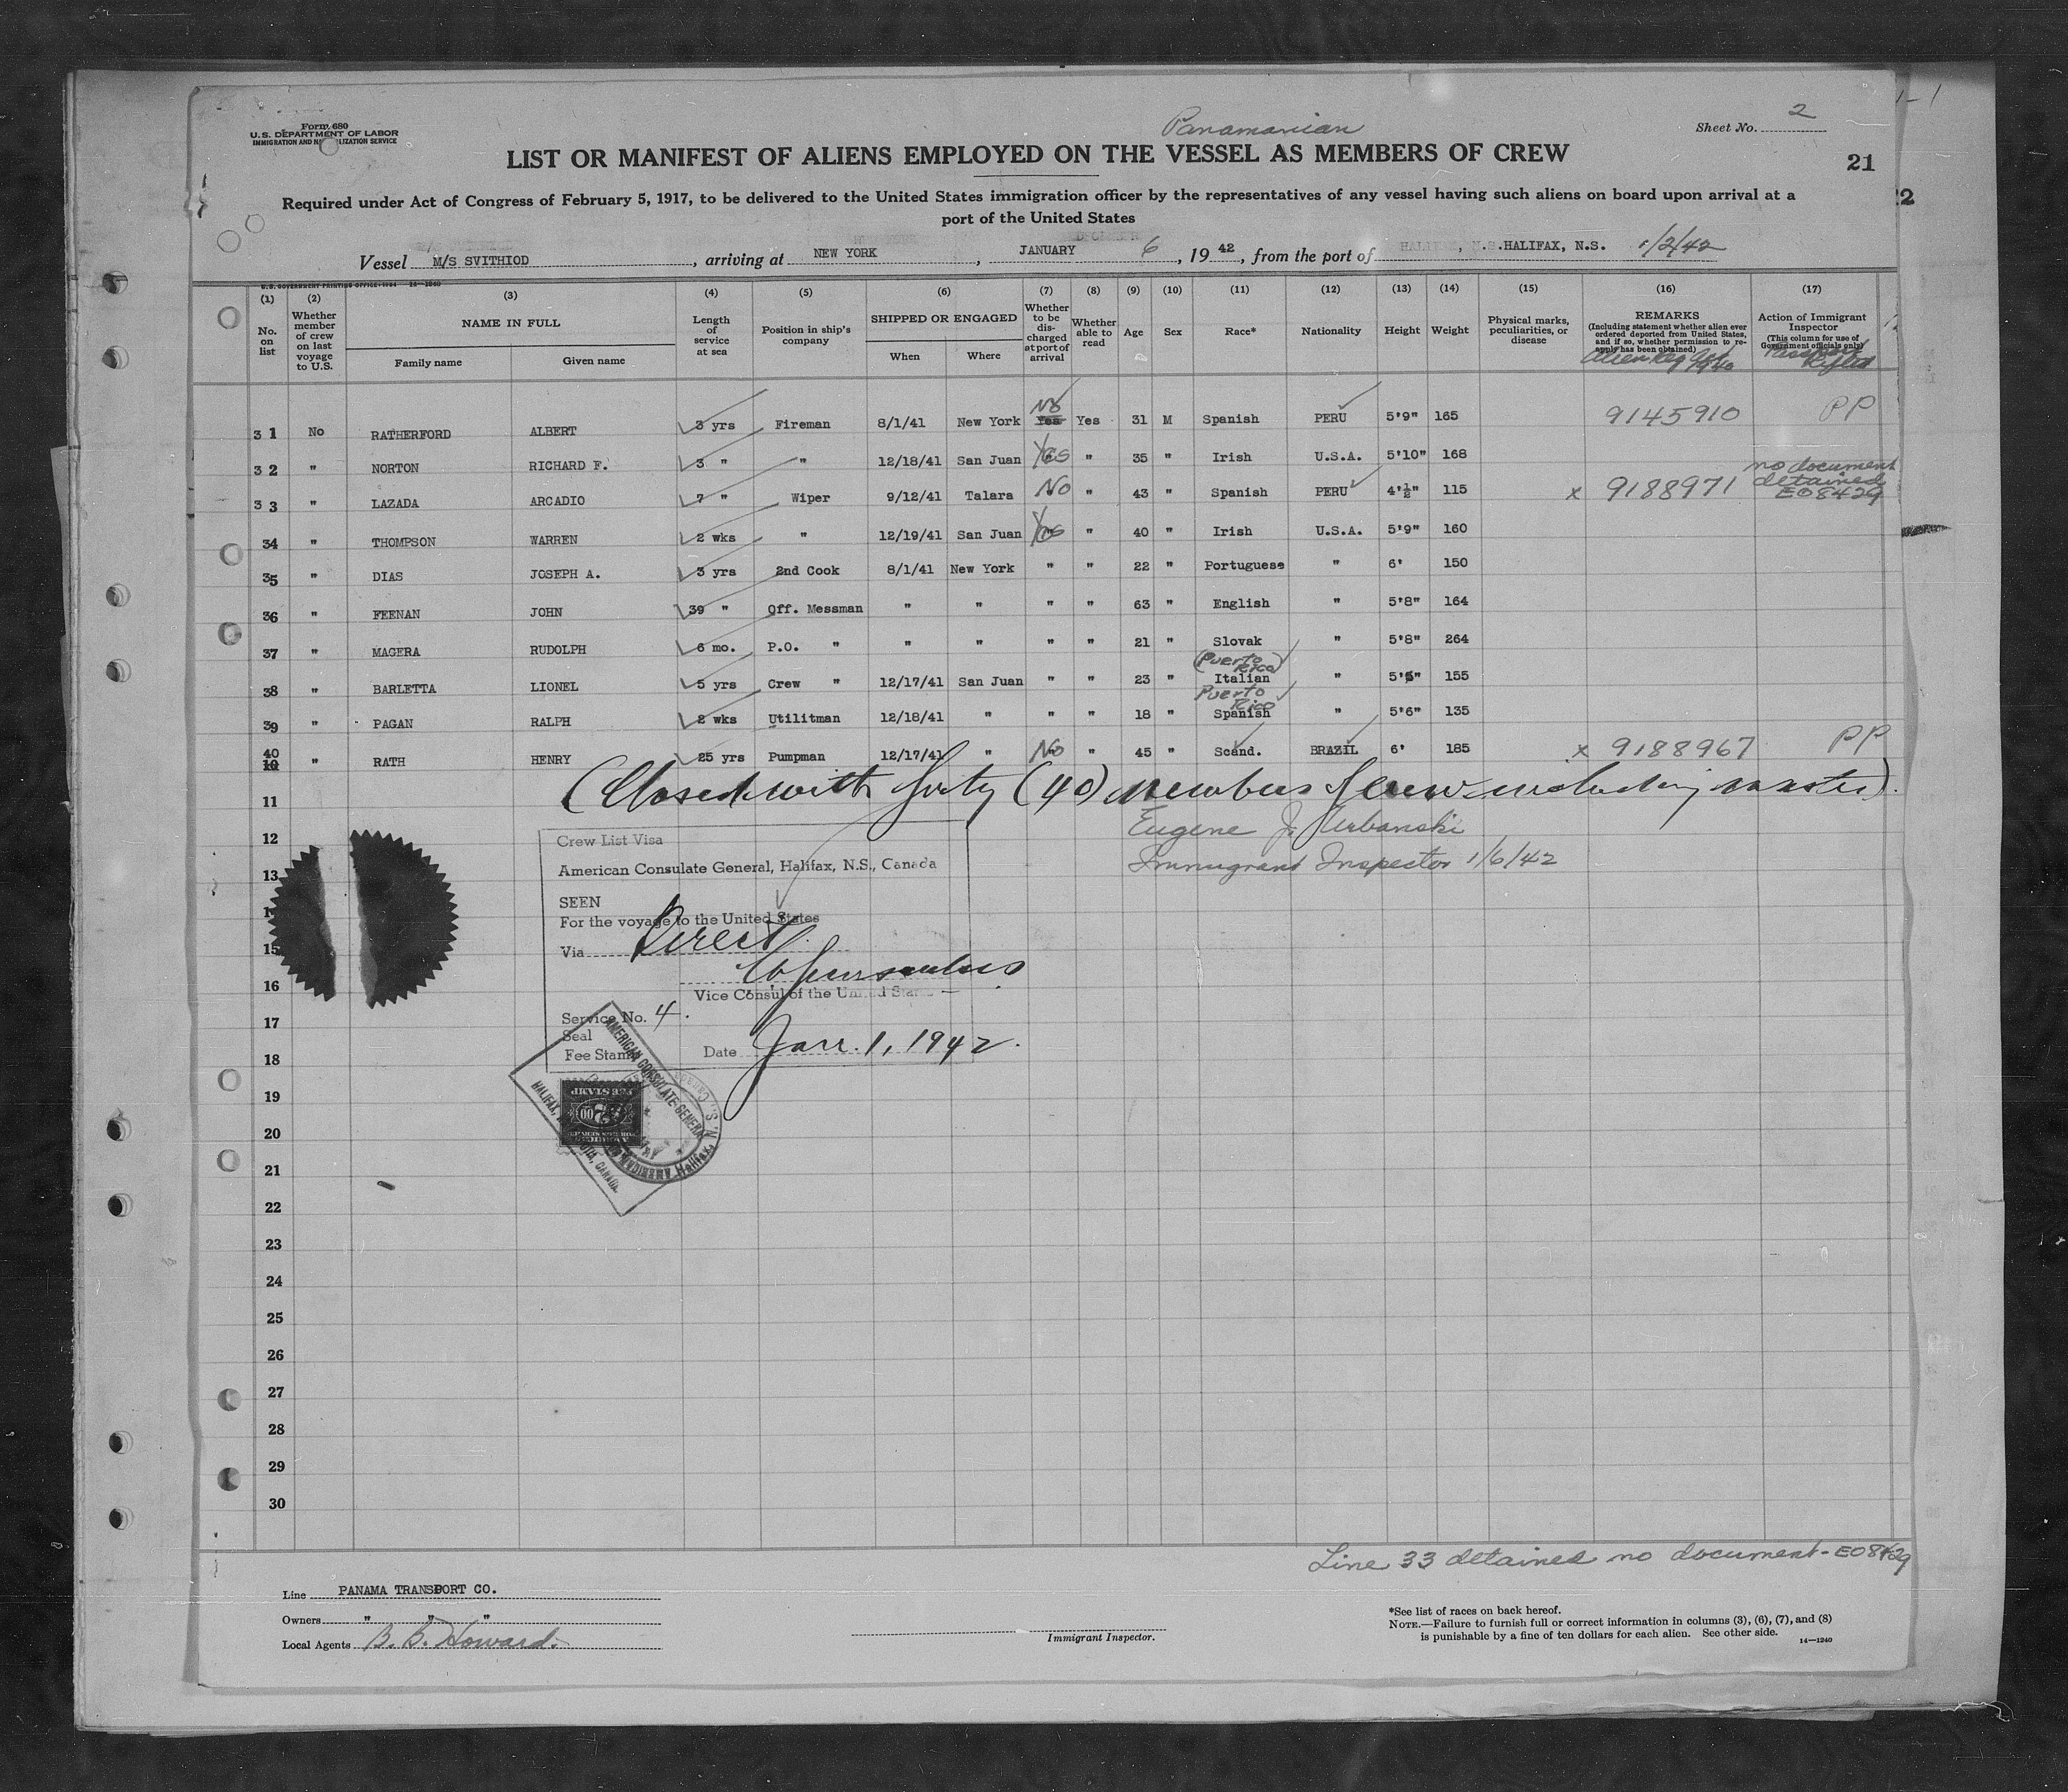 Form 680
U.S. DEPARTMENT OF LABOR
IMMIGRATION AND NATURALIZATION SERVICE
Panamanian
Sheet No. 2
LIST OR MANIFEST OF ALIENS EMPLOYED ON THE VESSEL AS MEMBERS OF CREW
21
Required under Act of Congress of February 5, 1917, to be delivered to the United States immigration officer by the representatives of any vessel having such aliens on board upon arrival at a
port of the United States
Vessel M/S SVITHIOD, arriving at NEW YORK, JANUARY 6, 1942, from the port of HALIFAX, N.S. 1/2/42
(1) No. on list
(2) Whether member of crew on last voyage to U.S.
(3) NAME IN FULL Family name Given name
(4) Length of service at sea
(5) Position in ship's company
(6) SHIPPED OR ENGAGED When Where
(7) Whether to be discharged at port of arrival
(8) Whether able to read
(9) Age
(10) Sex
(11) Race*
(12) Nationality
(13) Height
(14) Weight
(15) Physical marks, peculiarities, or disease
(16) REMARKS (Including statement whether alien ever ordered deported from United States, and if so, whether permission to reapply has been obtained)
(17) Action of Immigrant Inspector (This column for use of Government officials only)
31 No RATHERFORD ALBERT 3 yrs Fireman 8/1/41 New York Yes No Yes 31 M Spanish PERU 5'9" 165 9145910 PP
32 " NORTON RICHARD F. 3 " " 12/18/41 San Juan Yes " 35 " Irish U.S.A. 5'10" 168
33 " LAZADA ARCADIO 7 " Wiper 9/12/41 Talara No " 43 " Spanish PERU 4'½" 115 x 9188971 no document detained E08429
34 " THOMPSON WARREN 2 wks " 12/19/41 San Juan Yes " 40 " Irish U.S.A. 5'9" 160
35 " DIAS JOSEPH A. 3 yrs 2nd Cook 8/1/41 New York " " 22 " Portuguese " 6' 150
36 " FEENAN JOHN 39 " Off. Messman " " " " 63 " English " 5'8" 164
37 " MAGERA RUDOLPH 6 mo. P.O. " " " " " 21 " Slovak " 5'8" 264
38 " BARLETTA LIONEL 5 yrs Crew " 12/17/41 San Juan " " 23 " (Puerto Rico) Italian " 5'6" 155
39 " PAGAN RALPH 2 wks Utilitman 12/18/41 " " " 18 " Puerto Rico Spanish " 5'6" 135
40 " RATH HENRY 25 yrs Pumpman 12/17/41 " No " 45 " Scand. BRAZIL 6' 185 x 9188967 PP
(Closed with forty (40) members of crew including master).
Eugene J. Urbanski
Immigrant Inspector 1/6/42
11
12
13
15
16
17
18
19
20
21
22
23
24
25
26
27
28
29
30
Crew List Visa
American Consulate General, Halifax, N.S., Canada
SEEN
For the voyage to the United States
Via Direct
Vice Consul of the United States
Service No. 4.
Seal
Fee Stamp
Date Jan. 1, 1942.
AMERICAN CONSULATE GENERAL
HALIFAX, CANADA.
Line 33 detained no document - E08429
Line PANAMA TRANSPORT CO.
Owners " " "
Local Agents B. B. Howard.
Immigrant Inspector.
*See list of races on back hereof.
NOTE.—Failure to furnish full or correct information in columns (3), (6), (7), and (8)
is punishable by a fine of ten dollars for each alien. See other side.
14—1240